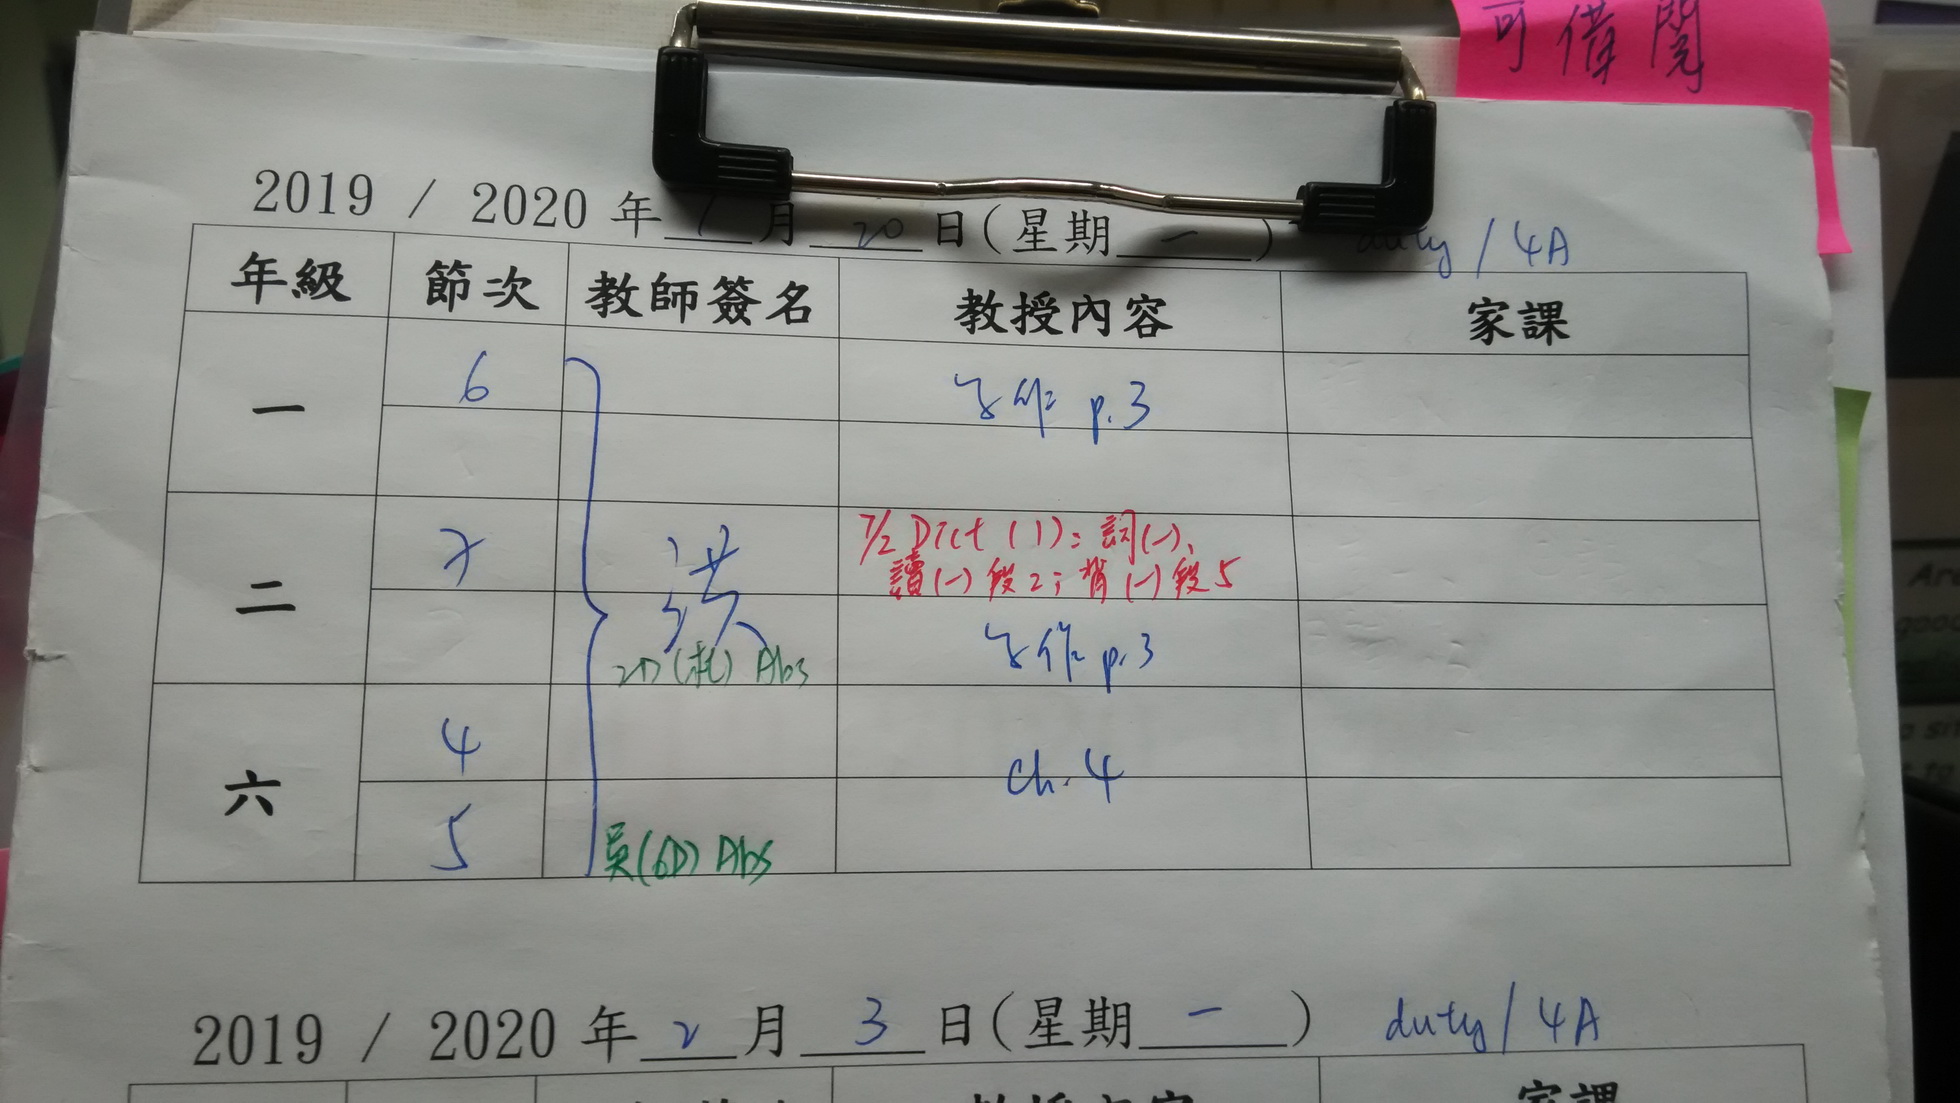 可借閱
2019 / 2020 年 1 月 20 日(星期 一 ) duty / 4A
年級 節次 教師簽名 教授內容 家課
一 6 p.3
二 7 洪 7/2 Dict (1): 詞(一)、
讀(一)段2; 背(一)段5
p.3
2D Abs
六 4 ch.4
5 吳(6D) Abs
2019 / 2020 年 2 月 3 日(星期 一 ) duty / 4A
教授內容 家課